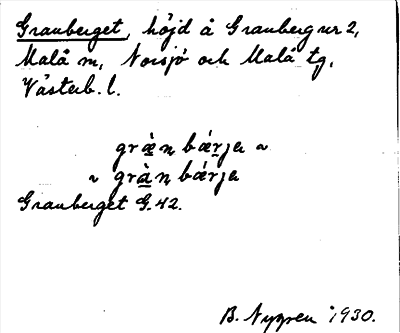 Granberget, höjd å Granberg nr 2,
Malå sn, Norsjö och Malå tg,
Västerb. l.
græ̀n bǽrjə ~
~ gràn bǽrjə
Granberget G.42.
B. Nygren 1930.